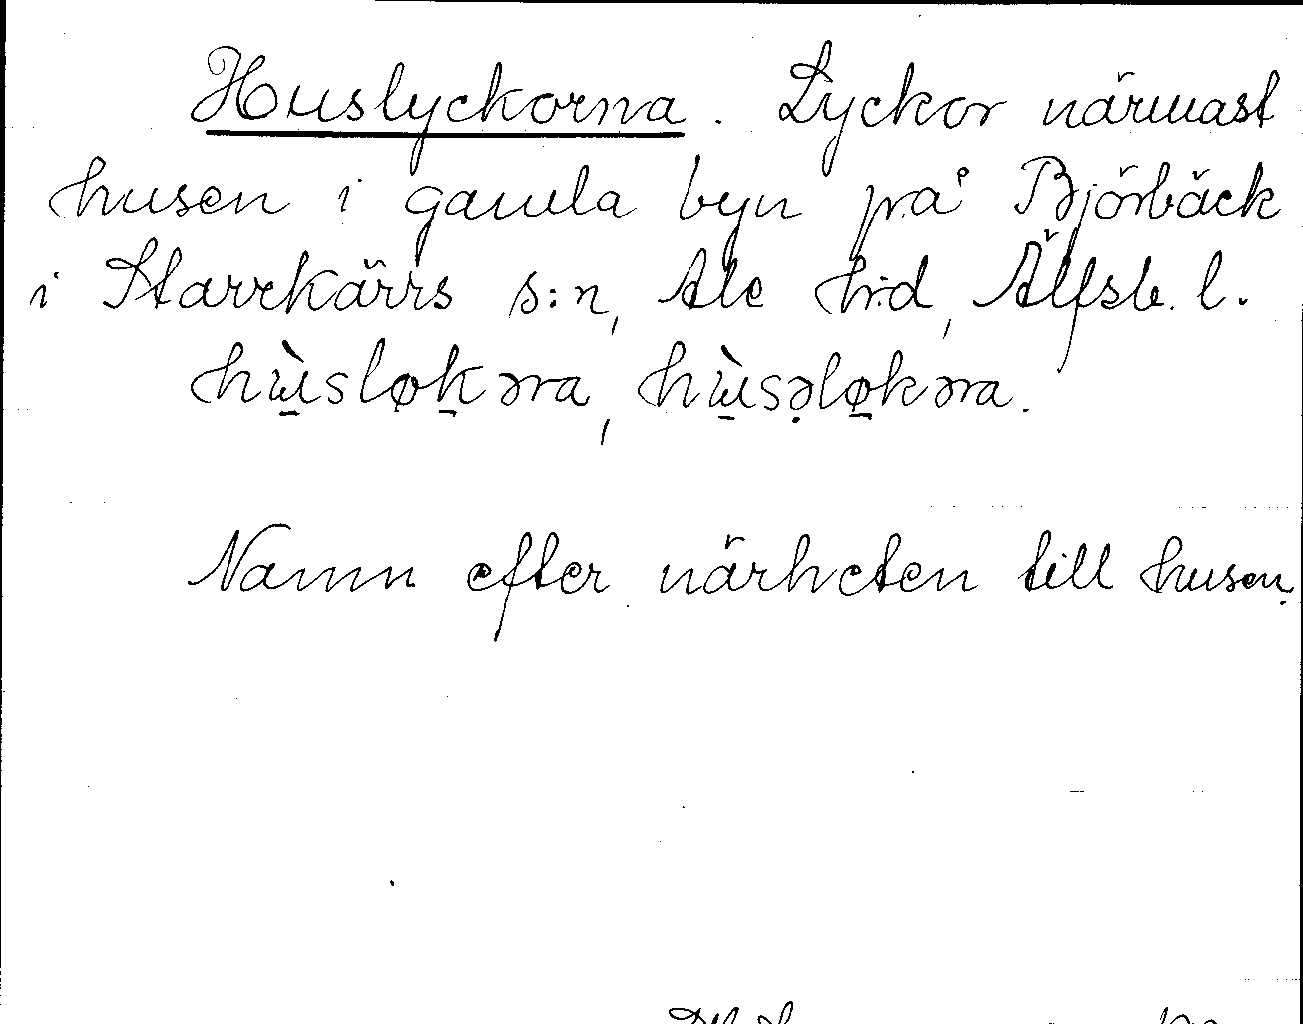 Huslyckorna. Lyckor närmast
husen i gamla byn på Björbäck
i Starrkärrs s:n, Ale h:d, Älfsb. l.
hɯ̀sløkəra, hɯ̀səløkəra.
Namn efter närheten till husen.